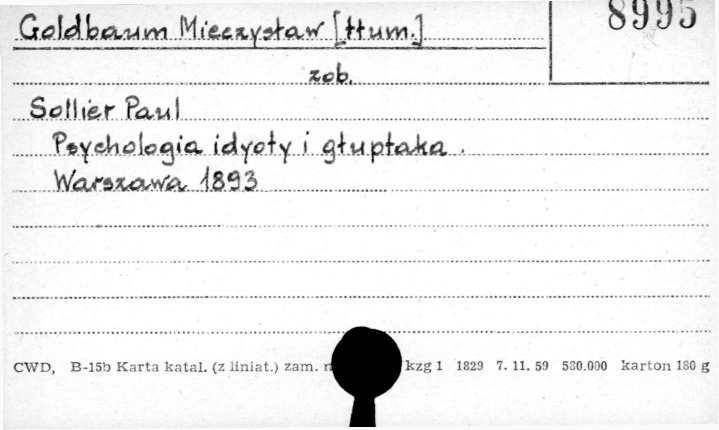 8995
Goldbaum Mieczysław [tłum.]
zob.
Sollier Paul
Psychologia idyoty i głuptaka.
Warszawa 1893
CWD, B-15b Karta katal. (z liniat.) zam. kzg 1 1829 7. 11. 59 580.000 karton 180 g